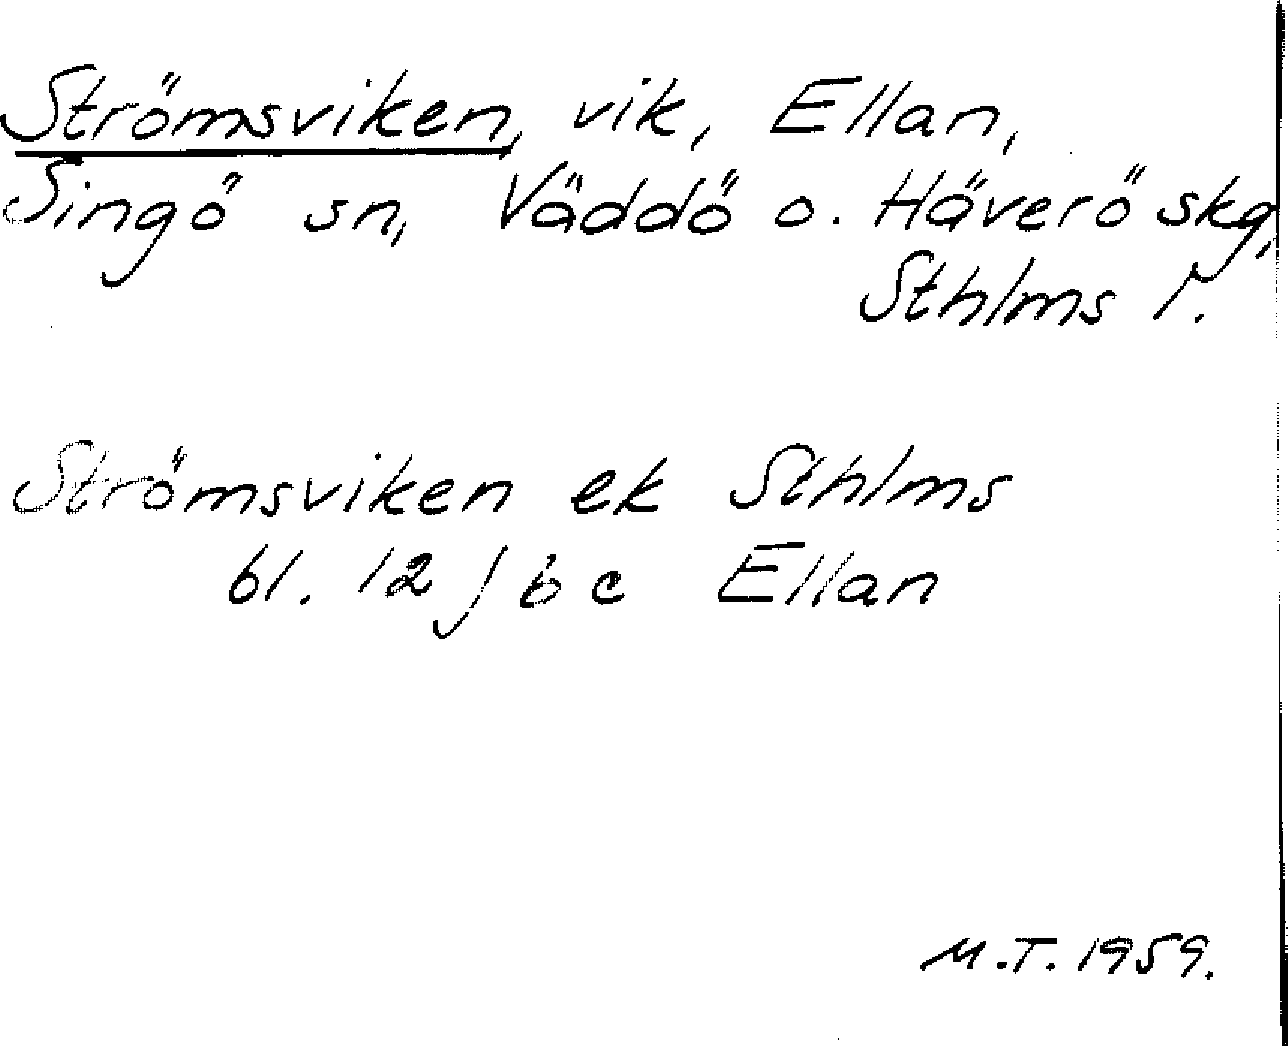 Strömsviken, vik, Ellan,
Singö sn, Väddö o. Häverö skg,
Sthlms l.
Strömsviken ek Sthlms
bl. 12 J b c Ellan
M.T. 1959.